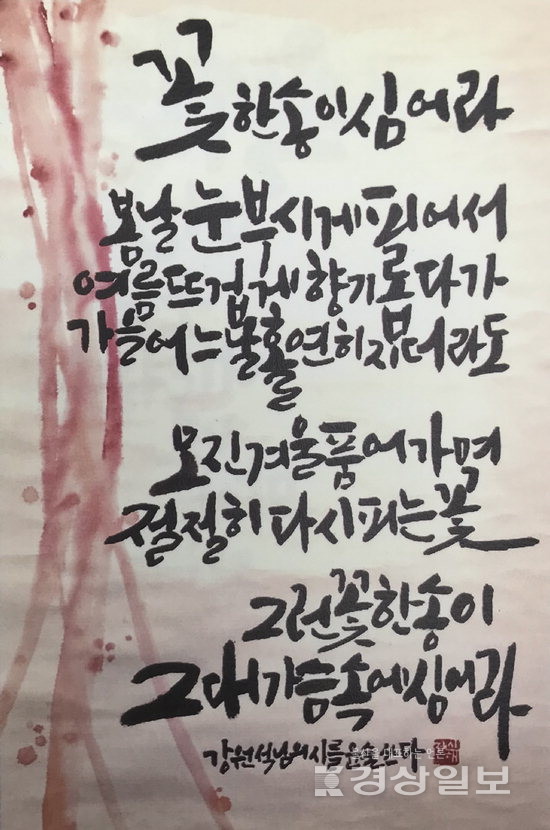 꽃 한송이 심어라
봄날 눈부시게 피어서
여름 뜨겁게 향기롭다가
가을 어느날 홀연히 진다더라도
모진 겨울 품어가며
절절히 다시 피는 꽃
그런 꽃 한송이
그대 가슴속에 심어라
강원석님의 시를
경상일보